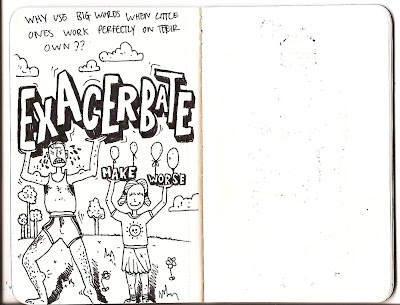 WHY USE BIG WORDS WHEN LITTLE
ONES WORK PERFECTLY ON THEIR
OWN??
EXACERBATE
MAKE WORSE